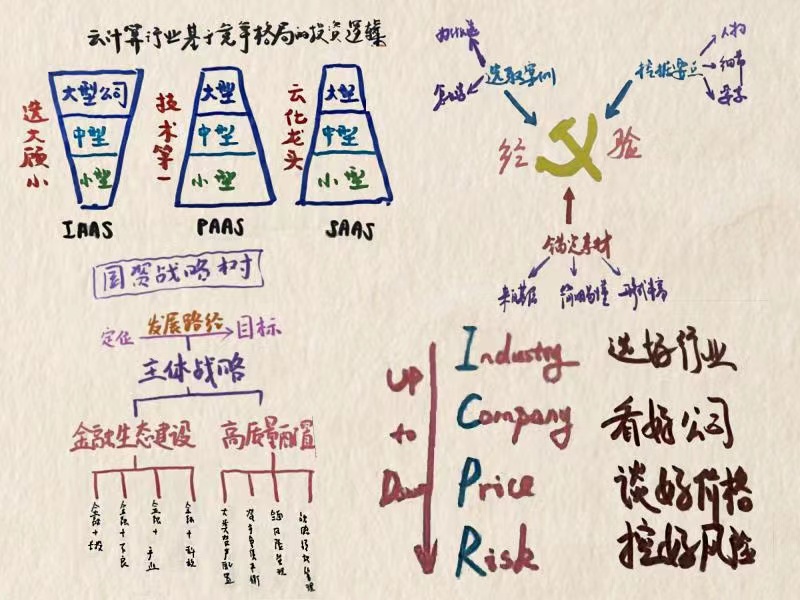 云计算行业基于竞争格局的投资逻辑
选大顾小
大型公司
中型
小型
IAAS
技术第一
大型
中型
小型
PAAS
云化龙头
大型
中型
小型
SAAS
选取案例
挖掘要点
人物
细节
经验
锚定素材
国贸战略树
定位
发展路径
目标
主体战略
金融生态建设
高质量配置
金融+科技
大类资产配置
Up
to
Down
Industry 选好行业
Company 看好公司
Price 谈好价格
Risk 控好风险